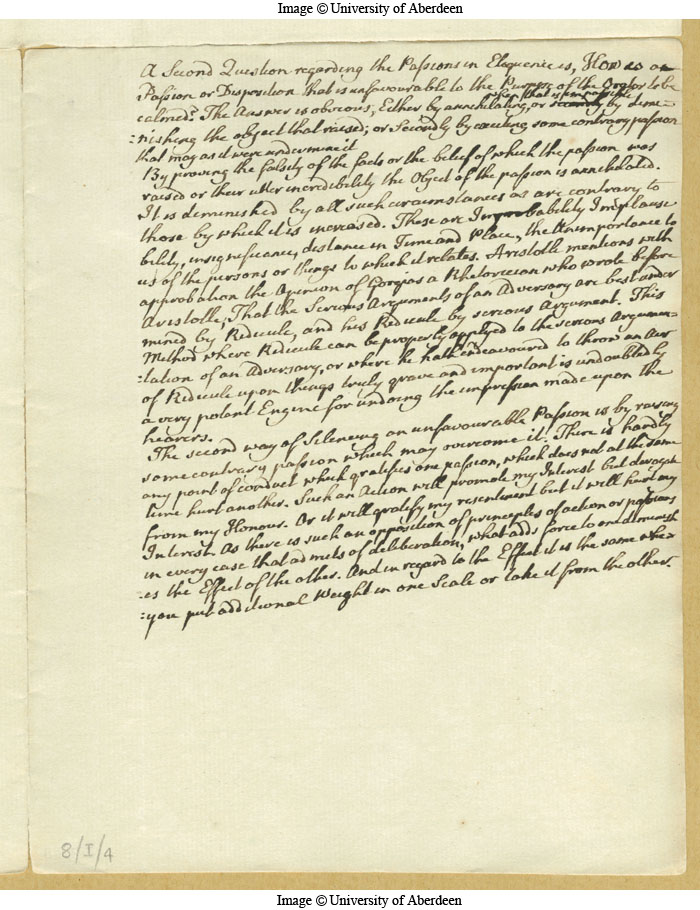 Image © University of Aberdeen
A Second Question regarding the Passions in Eloquence is, How is a
Passion or Disposition that is unfavourable to the Purpose of the Orator to be
calmed? The Answer is obvious, Either by annihilating, or by demi=
=nishing the object that raised; or Secondly by exciting some contrary passion
that may as it were undermine it
By proving the falsity of the facts or the belief of which the passion was
raised or their utter incredibility the Object of the passion is annihilated.
It is deminished by all such circumstances as are contrary to
those by which it is increased. These are Improbability Implausi
bility, insignificance, distance in Time and Place, the Unimportance to
us of the persons or things to which it relates. Aristotle mentions with
approbation the Opinion of Gorgias a Rhetorician who wrote before
Aristotle, That the Serious Arguments of an Adversary are best under
mined by Ridicule, and his Ridicule by serious Argument. This
Method where Ridicule can be properly applyed to the serious Argumen=
=tation of an Adversary, or where he hath endeavoured to throw an Air
of Ridicule upon things truly grave and important is undoubtedly
a very potent Engine for undoing the impression made upon the
hearers.
The second way of Silencing an unfavourable Passion is by raising
some contrary passion which may overcome it. There is hardly
any point of conduct which gratifies one passion, which does not at the same
time hurt another. Such an Action will promote my Interest but derogate
from my Honour. Or it will gratify my resentment but it will hurt my
Interest. As there is such an opposition of principles of action or passions
in every case that admits of deliberation, what adds force to one diminish
=es the Effect of the other. And in regard to the Effect it is the same whe
=you put additional Weight in one Scale or take it from the other.
8/I/4
Image © University of Aberdeen